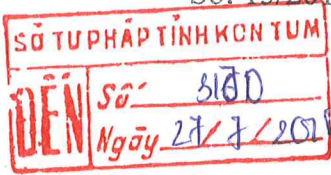 SỞ TƯ PHÁP TỈNH KON TUM
ĐẾN
Số
Ngày 27/7/